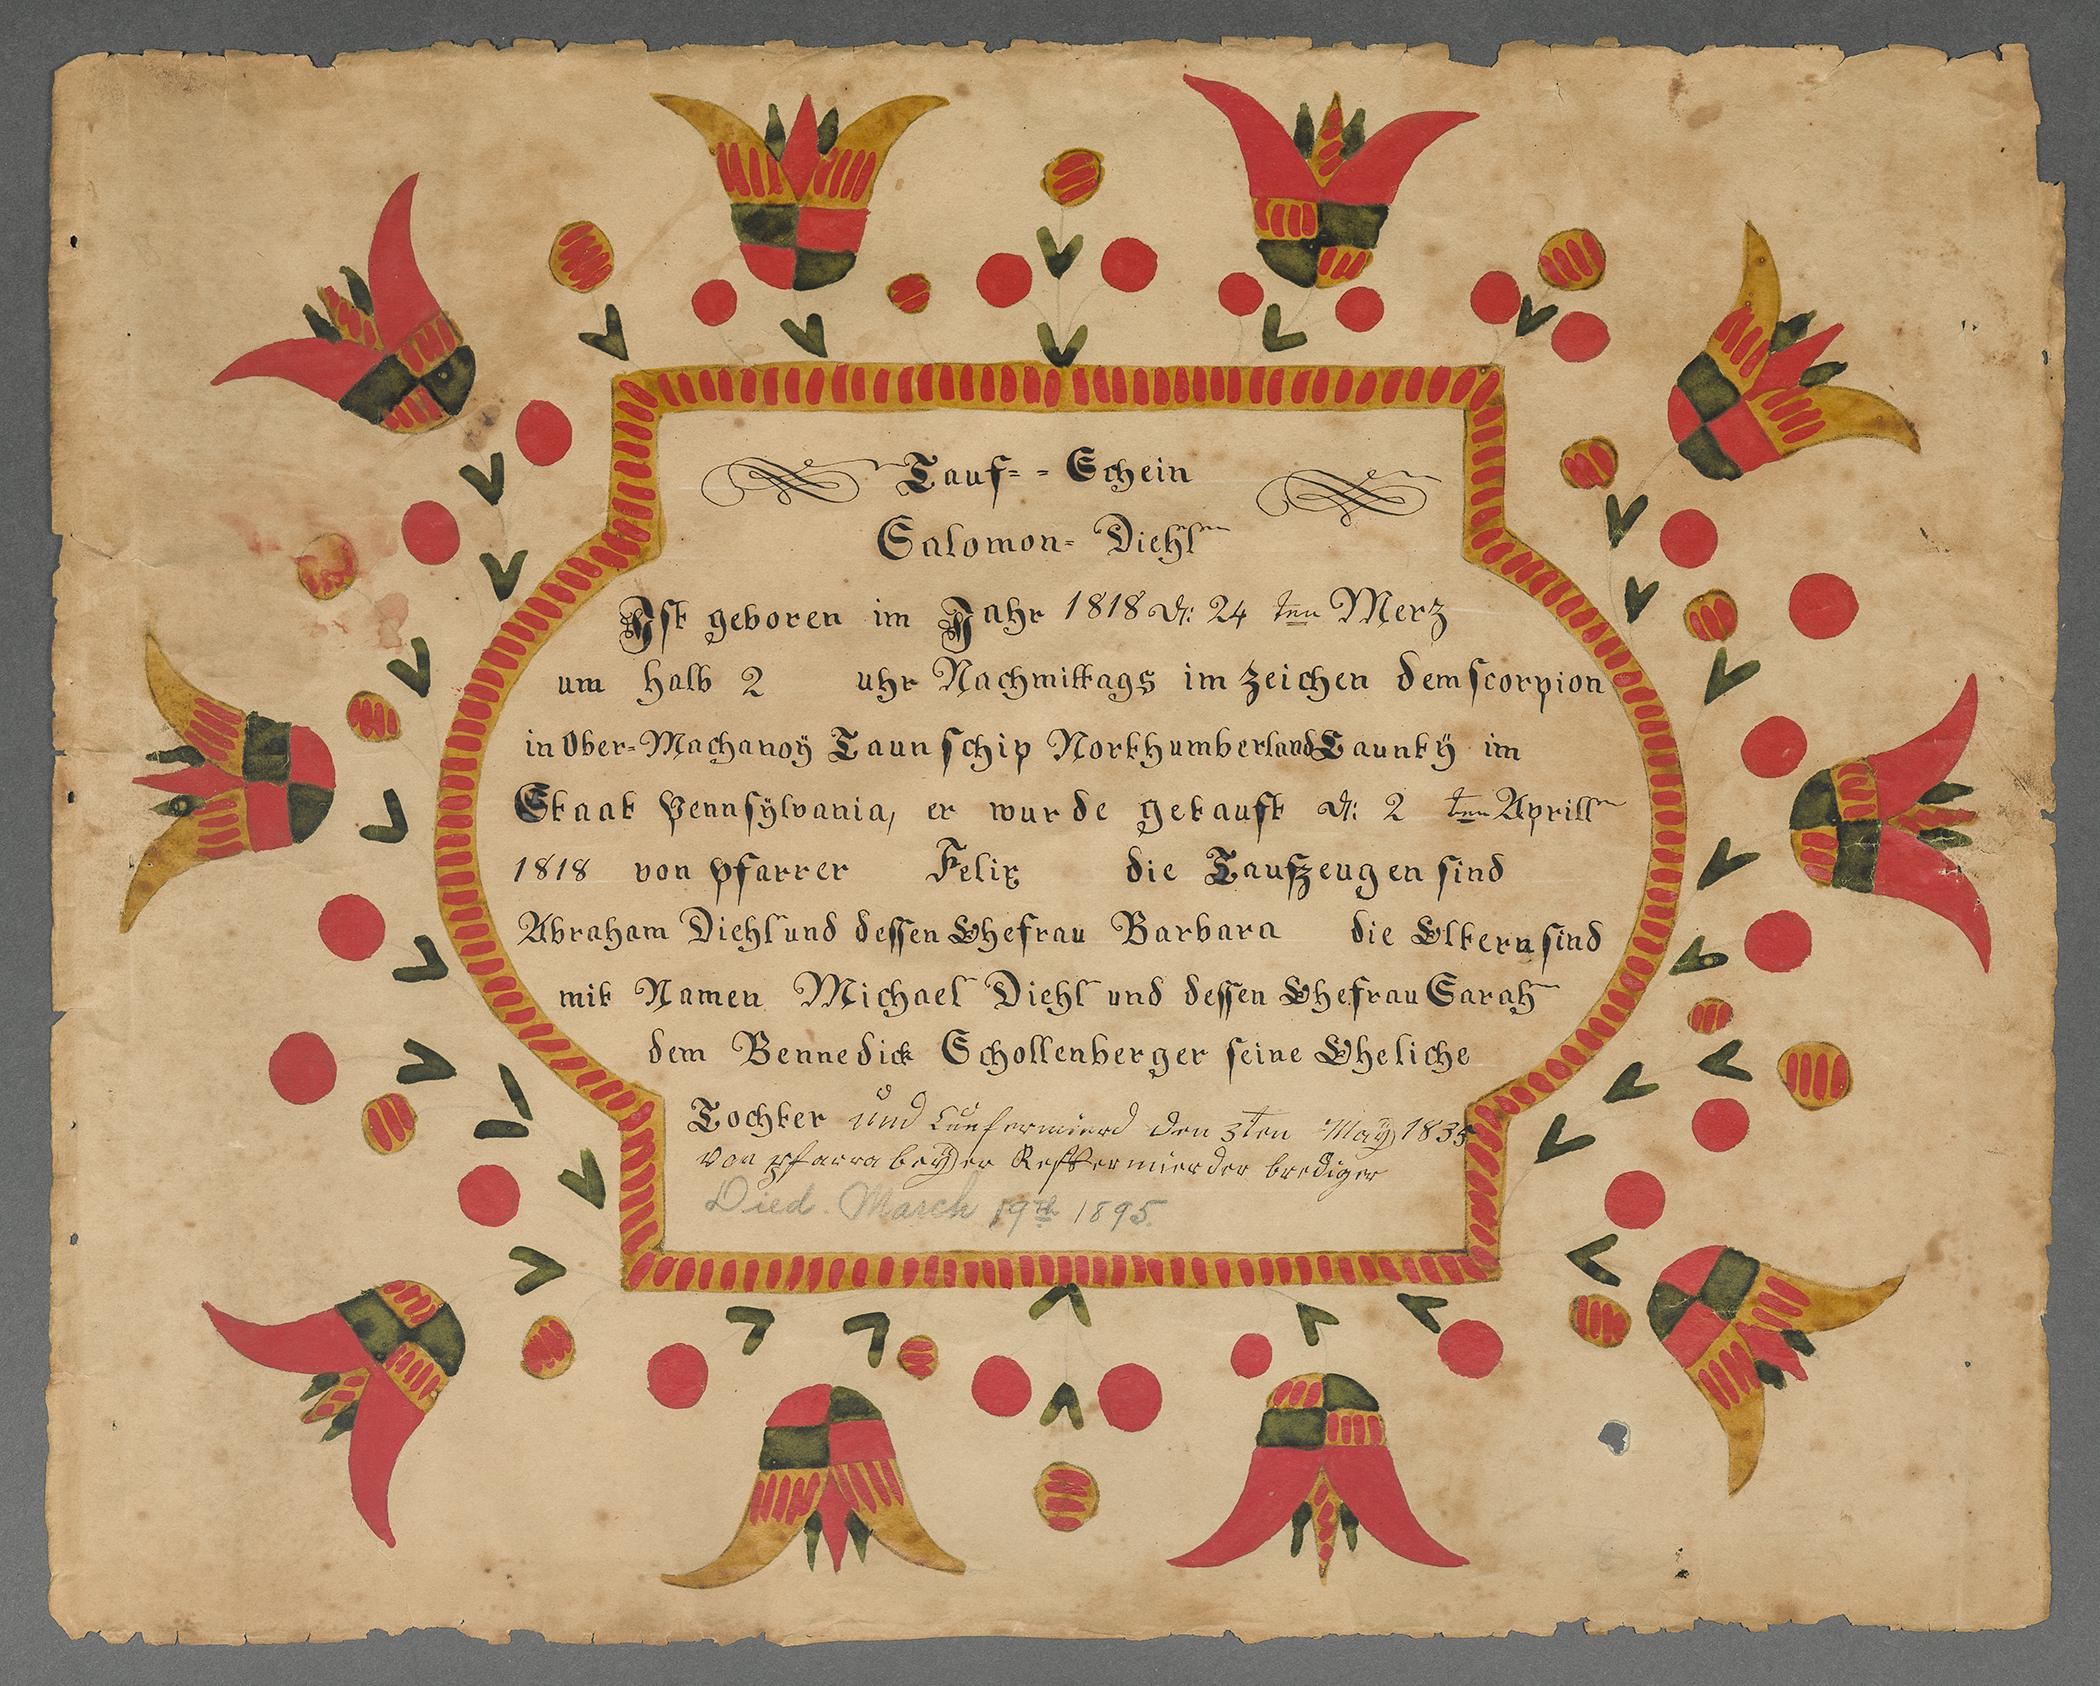 Tauf= = Schein
Salomon= Diehl
Ist geboren im Jahr 1818 d: 24 ten Merz
um halb 2 uhr Nachmittags im zeichen dem scorpion
in Ober=Machanoÿ Taunschip Northumberland Cauntÿ im
Staat Pennsÿlvania, er wurde getauft d: 2 ten Aprill
1818 von pfarrer Felix die Taufzeugen sind
Abraham Diehl und dessen Ehefrau Barbara die Eltern sind
mit Namen Michael Diehl und dessen Ehefrau Sarah
dem Bennedick Schollenberger seine Eheliche
Tochter und Cunfermierd den 3ten May 1835
von pfarra beyer Reffermierder brediger
Died March 19th 1895.